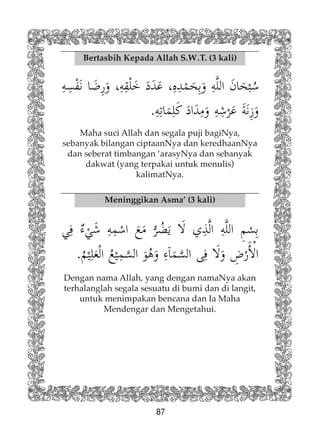 Bertasbih Kepada Allah S.W.T. (3 kali)
سُبْحَانَ اللَّهِ وَبِحَمْدِهِ، عَدَدَ خَلْقِهِ، وَرِضَا نَفْسِهِ
وَزِنَةَ عَرْشِهِ وَمِدَادَ كَلِمَاتِهِ.
Maha suci Allah dan segala puji bagiNya,
sebanyak bilangan ciptaanNya dan keredhaanNya
dan seberat timbangan ‘arasyNya dan sebanyak
dakwat (yang terpakai untuk menulis)
kalimatNya.
Meninggikan Asma’ (3 kali)
بِسْمِ اللَّهِ الَّذِي لَا يَضُرُّ مَعَ اسْمِهِ شَيْءٌ فِي
الْأَرْضِ وَلَا فِى السَّمَآءِ وَهُوَ السَّمِيْعُ الْعَلِيْمُ.
Dengan nama Allah, yang dengan namaNya akan
terhalanglah segala sesuatu di bumi dan di langit,
untuk menimpakan bencana dan Ia Maha
Mendengar dan Mengetahui.
87